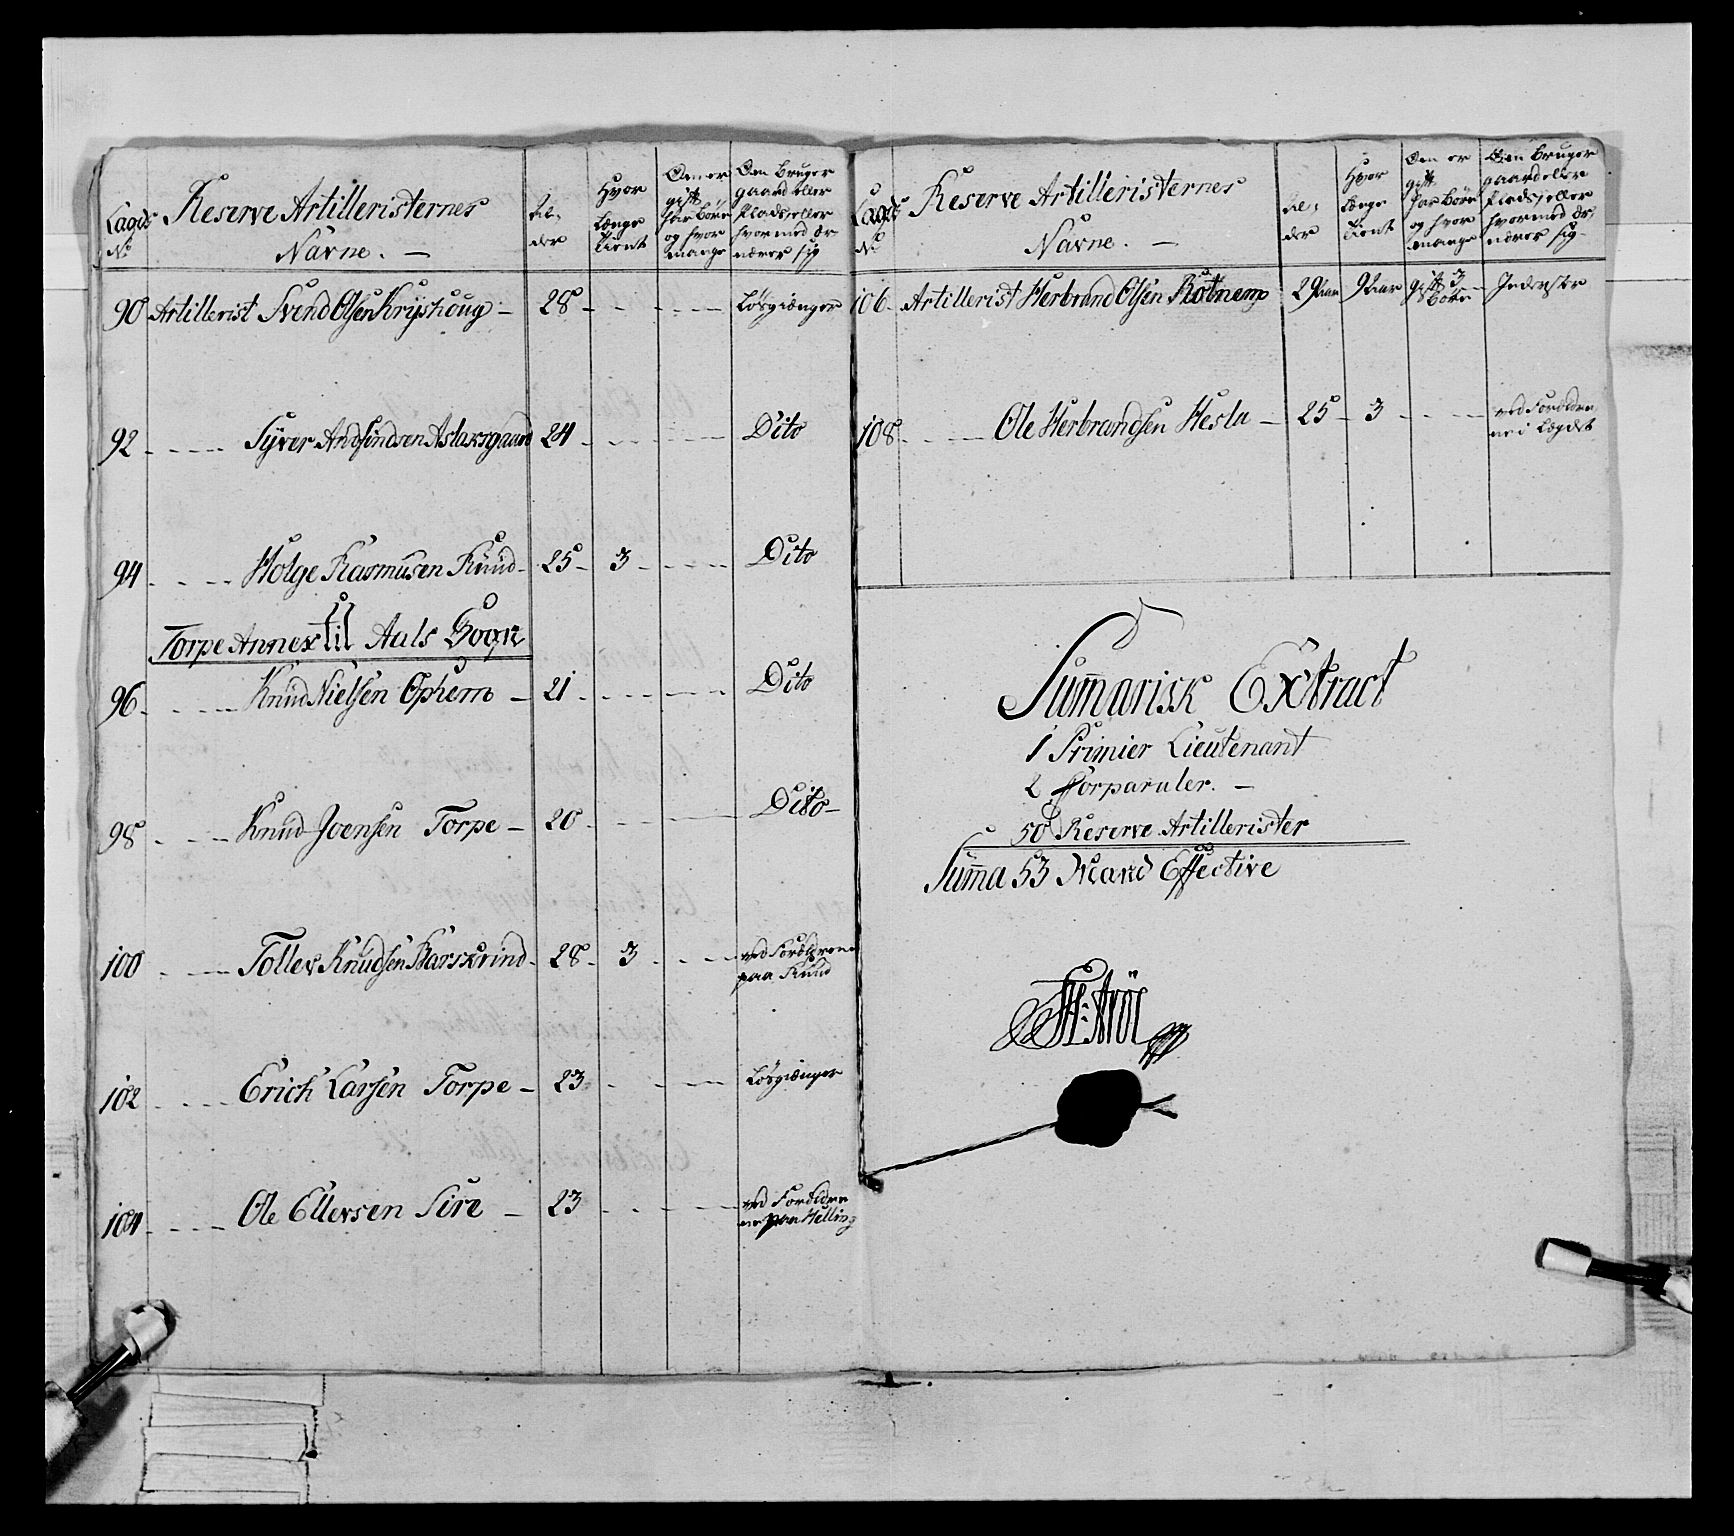 Lægds No
Reserve Artilleristernes
Navne. —
Al-
der
Hvor
længe
tient
Om er
gift
har Børn
og hvor
mange
Om bruger
gaard eller
Plads, eller
hvormed Er-
nærer sig
90 Artillerist Svend Olsen Kryshoug — 28 - - - - - Løsgiænger
92 - - - - Syver Andfindsen Aslaksgaard 24 - - - - - Dito
94 - - - - Holge Rasmusen Ruud - 25 - 3 - - - - Dito
Torpe Annex til Aals Sogn
96 - - - - Knud Nielsen Ophem - 21 - - - - - Dito
98 - - - Knud Joensen Torpe - 20 - - - - Dito -
100 - - - Tollev Knudsen Barskrind - 28 - 3 - - - ved Forældrene
paa Ruud
102 - - - - Erich Larsen Torpe - 23 - - - Løsgiænger
104 - - - - Ole Ellevsen Sire - 23 - - - - ved Foreldre
ne paa Helling
Lægds
No
Reserve Artilleristernes
Navne. —
Al-
der
Hvor
længe
tient
Om er
gift
har Børn
og hvor
mange
Om bruger
gaard eller
Plads, eller
hvormed Er-
nærer sig -
106 - Artillerist Herbrand Olsen Rotnem 29 aar 9 aar gift 3
Børn - Inderster
108 - - - - Ole Herbrandsen Hesla - 25 - 3 - - - - ved Foreldre
ne i Lægdet
Summarisk Extract
1 Primier Lieutenant
2 Corparaler. —
50 Reserve Artillerister
Summa 53 Mand Effective